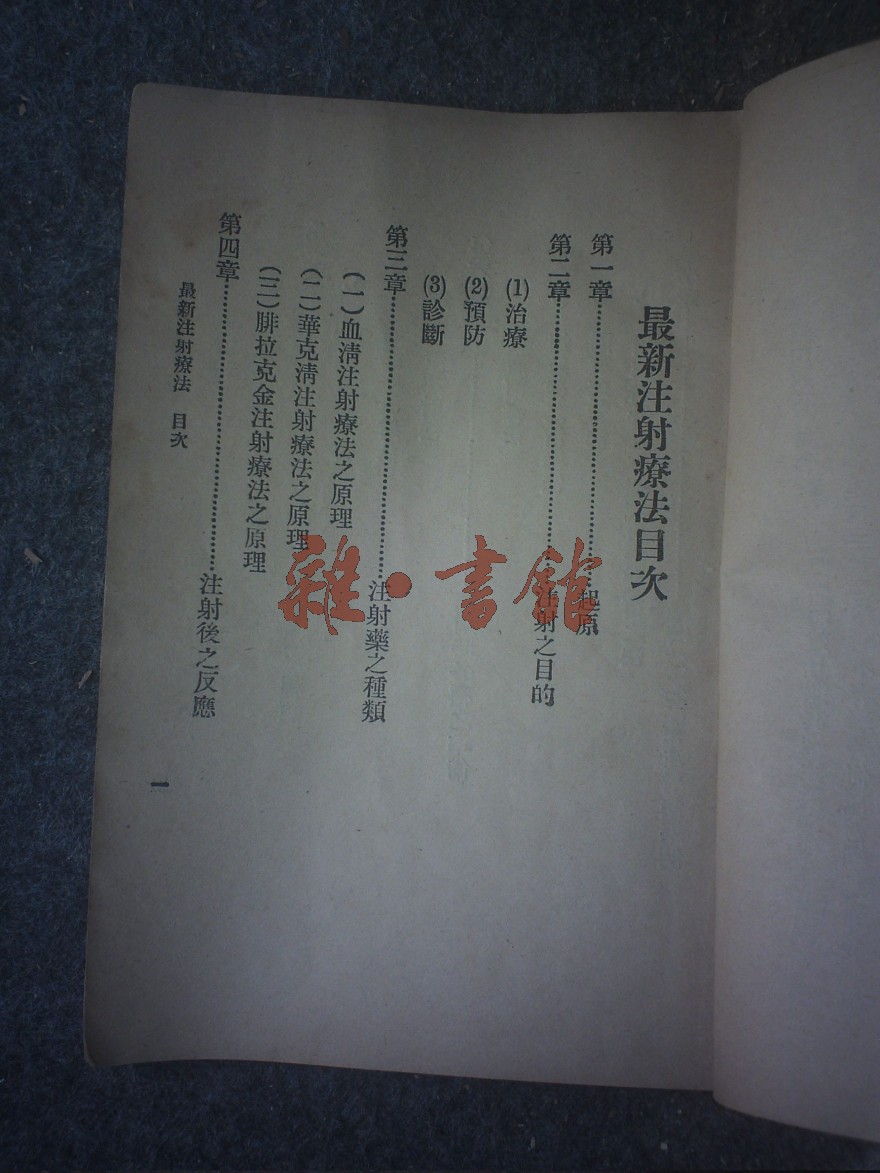 最新注射療法目次
第一章……起原
第二章……注射之目的
(1)治療
(2)預防
(3)診斷
第三章……注射藥之種類
(一)血清注射療法之原理
(二)華克清注射療法之原理
(三)腓拉克金注射療法之原理
第四章……注射後之反應
最新注射療法 目次
一
雜·書館